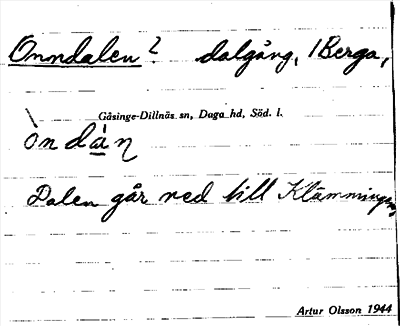 Onndalen? dalgång, 1 Berga,
Gåsinge-Dillnäs sn, Daga hd, Söd. l.
ò̀n dá̲n
Dalen går ned till Klämmingen
Artur Olsson 1944